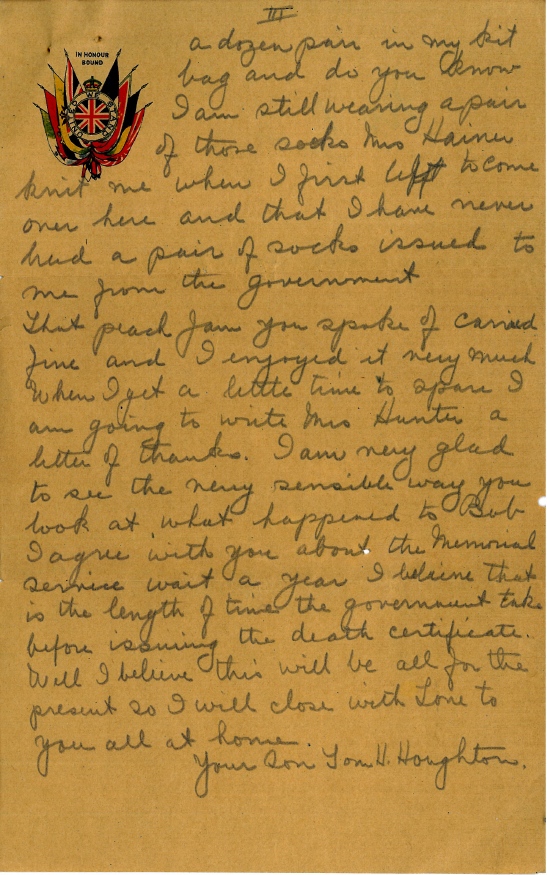 III
IN HONOUR
BOUND
a dozen pair in my kit
bag and do you know
I am still wearing a pair
of those socks Mrs Hainer
knit me when I first left to come
over here and that I have never
had a pair of socks issued to
me from the government
That peach Jam you spoke of carried
fine and I enjoyed it very much
When I get a little time to spare I
am going to write Mrs Hunter a
letter of thanks. I am very glad
to see the very sensible way you
look at what happened to Bob
I agree with you about the Memorial
service wait a year I beleive that
is the length of time the government take
before issuing the death certificate.
Well I believe this will be all for the
present so I will close with Love to
you all at home.
Your Son Tom H. Houghton.